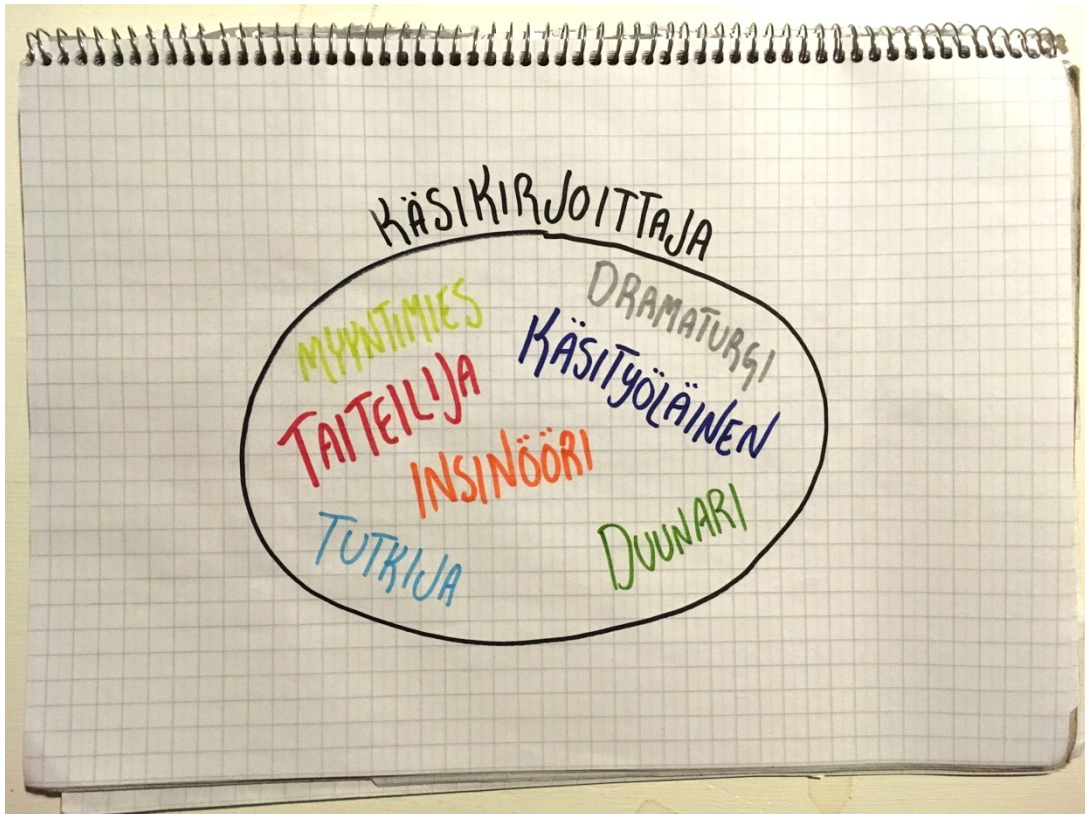 KÄSIKIRJOITTAJA
MYYNTIMIES
DRAMATURGI
TAITEILIJA
KÄSITYÖLÄINEN
INSINÖÖRI
TUTKIJA
DUUNARI